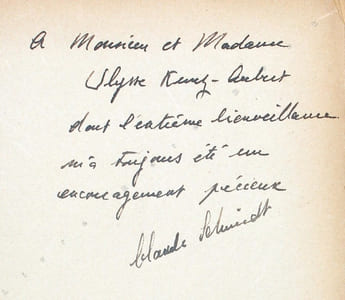 A Monsieur et Madame
Ulysse Kunz-Aubert
dont l'extrême bienveillance
m'a toujours été un
encouragement précieux
Claude Schmidt